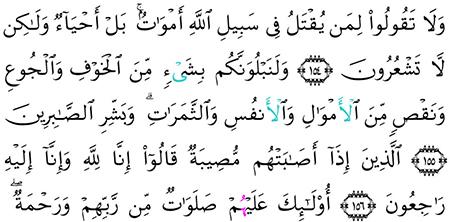 وَلَا تَقُولُوا۟ لِمَن يُقْتَلُ فِى سَبِيلِ ٱللَّهِ أَمْوَٰتٌۢ ۚ بَلْ أَحْيَآءٌ وَلَـٰكِن
لَّا تَشْعُرُونَ ١٥٤ وَلَنَبْلُوَنَّكُم بِشَىْءٍ مِّنَ ٱلْخَوْفِ وَٱلْجُوعِ
وَنَقْصٍ مِّنَ ٱلْأَمْوَٰلِ وَٱلْأَنفُسِ وَٱلثَّمَرَٰتِ ۗ وَبَشِّرِ ٱلصَّـٰبِرِينَ
١٥٥ ٱلَّذِينَ إِذَآ أَصَـٰبَتْهُم مُّصِيبَةٌ قَالُوٓا۟ إِنَّا لِلَّهِ وَإِنَّآ إِلَيْهِ
رَٰجِعُونَ ١٥٦ أُو۟لَـٰٓئِكَ عَلَيْهِمْ صَلَوَٰتٌ مِّن رَّبِّهِمْ وَرَحْمَةٌ ۖ